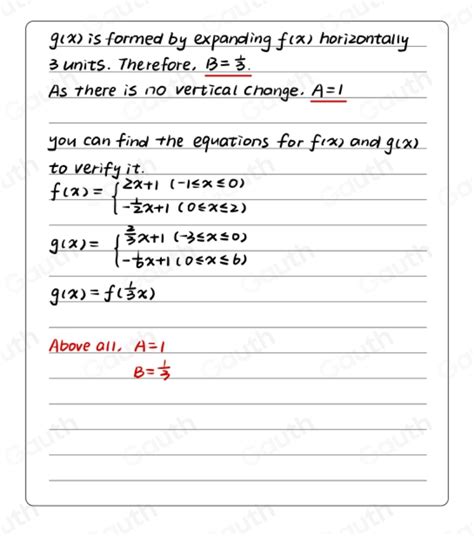 g(x) is formed by expanding f(x) horizontally
3 units. Therefore, B = 1/3.
As there is no vertical change, A = 1
you can find the equations for f(x) and g(x)
to verify it.
f(x) = { 2x+1 (-1≤x≤0)
-1/2x+1 (0≤x≤2)
g(x) = { 2/3x+1 (-3≤x≤0)
-1/6x+1 (0≤x≤6)
g(x) = f(1/3x)
Above all, A=1
B = 1/3